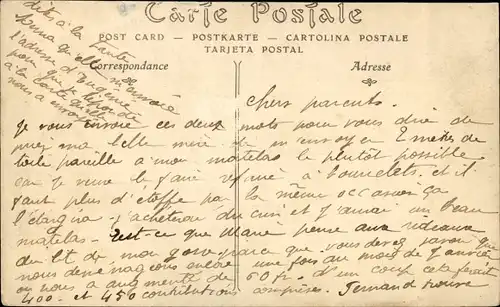 Carte Postale
POST CARD — POSTKARTE — CARTOLINA POSTALE
TARJETA POSTAL
Correspondance
Adresse
dites à la tante
qu'elle m'envoie
l'adresse d'Eugénie
pour que je réponde
à la carte qu'elle
nous a envoyé
Chers parents.
Je vous envoie ces deux mots pour vous dire de
ma belle mère de m'envoyer 2 mètres de
toile pareille à mon matelas le plutôt possible
car je veux le faire à bourrelets. et il
faut plus d'étoffe par la même occasion ça
l'élargira. j'achèterai du crin et j'aurai un beau
matelas. Est-ce que Marie pense aux rideaux
du lit de mon parce que vous devez savoir que
nous déménageons encore une fois au mois de janvier
on nous a augmenté de 50 fr. d'un coup cela ferait
400. et 450 contributions comprises. Fernand